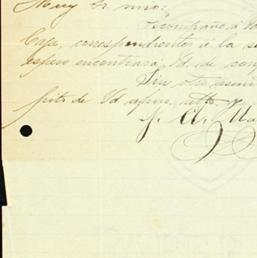 Muy Sr mio:
Acompaño á
Caja, correspondiente á la se
espero encontrará Vd. de con
Sin otro asun
de Vd afmo. atto y
A. Ma